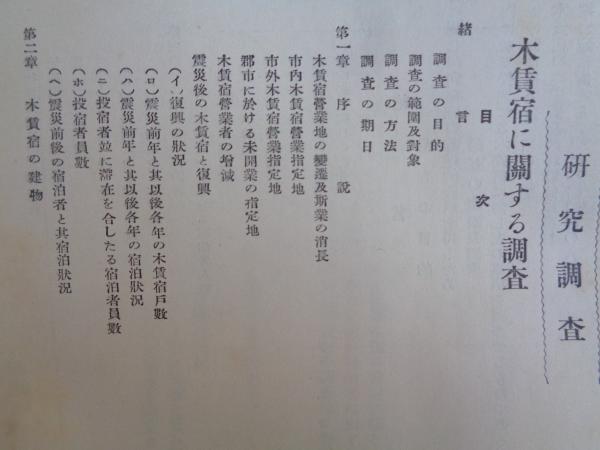 研究調査
木賃宿に關する調査
目次
緒言
調査の目的
調査の範圍及對象
調査の方法
調査の期日
第一章 序說
木賃宿營業地の變遷及斯業の消長
市內木賃宿營業指定地
市外木賃宿營業指定地
郡市に於ける未開業の指定地
木賃宿營業者の增減
震災後の木賃宿と復興
(イ)復興の狀況
(ロ)震災前年と其以後各年の木賃宿戶數
(ハ)震災前年と其以後各年の宿泊狀況
(ニ)投宿者竝に滯在を合したる宿泊者員數
(ホ)投宿者員數
(ヘ)震災前後の宿泊者と其宿泊狀況
第二章 木賃宿の建物